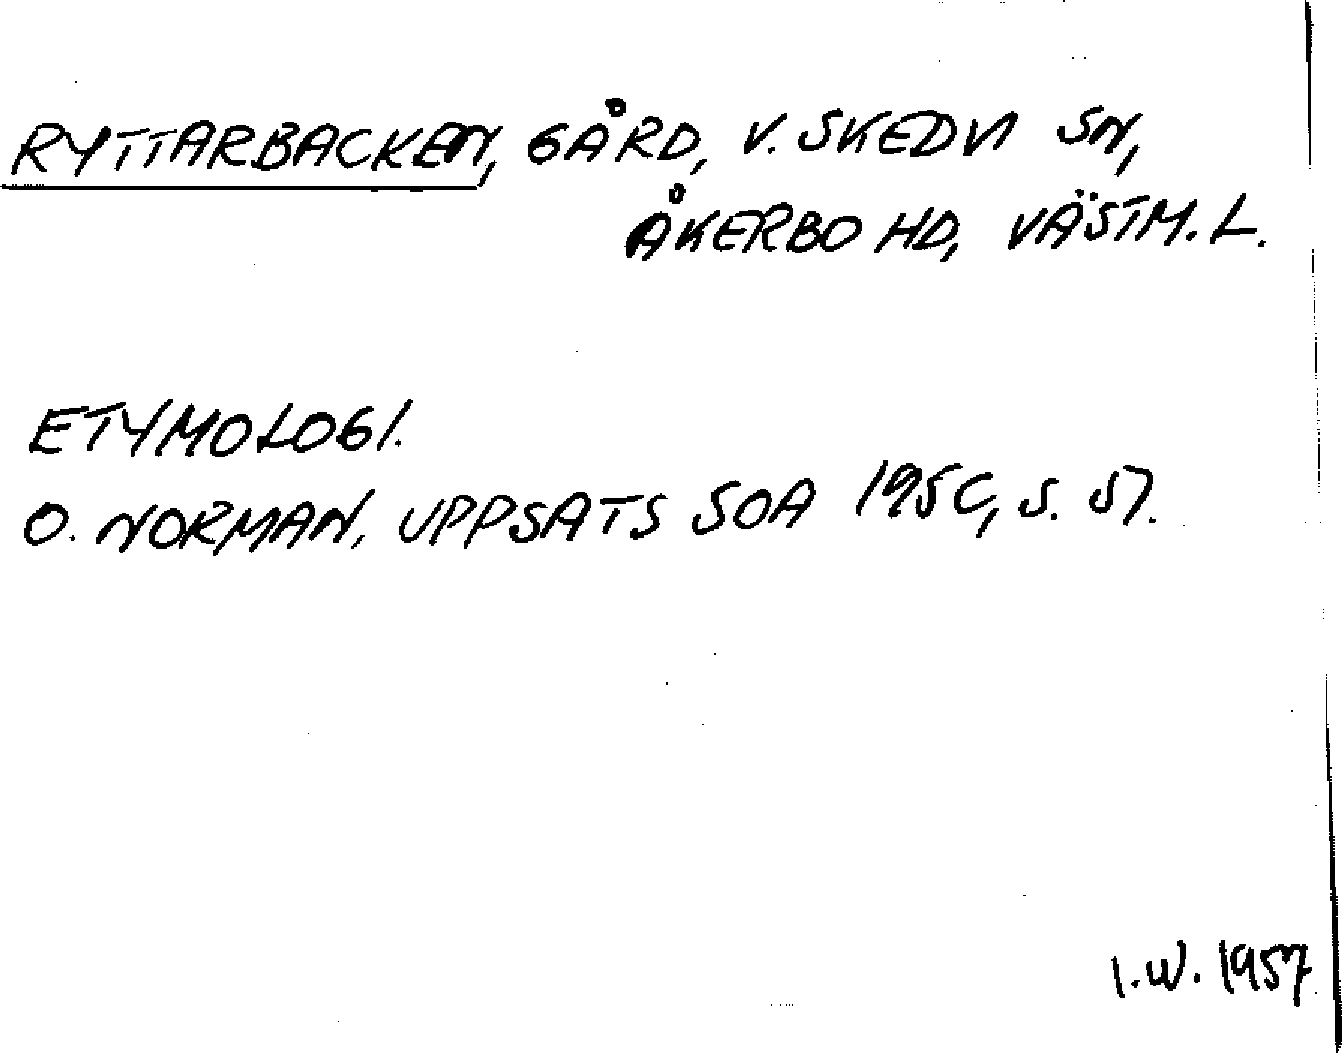 RYTTARBACKEN, GÅRD, V. SKEDVI SN,
ÅKERBO HD, VÄSTM. L.
ETYMOLOGI.
O. NORMAN, UPPSATS SOA 1956, S. 57.
I.W. 1957